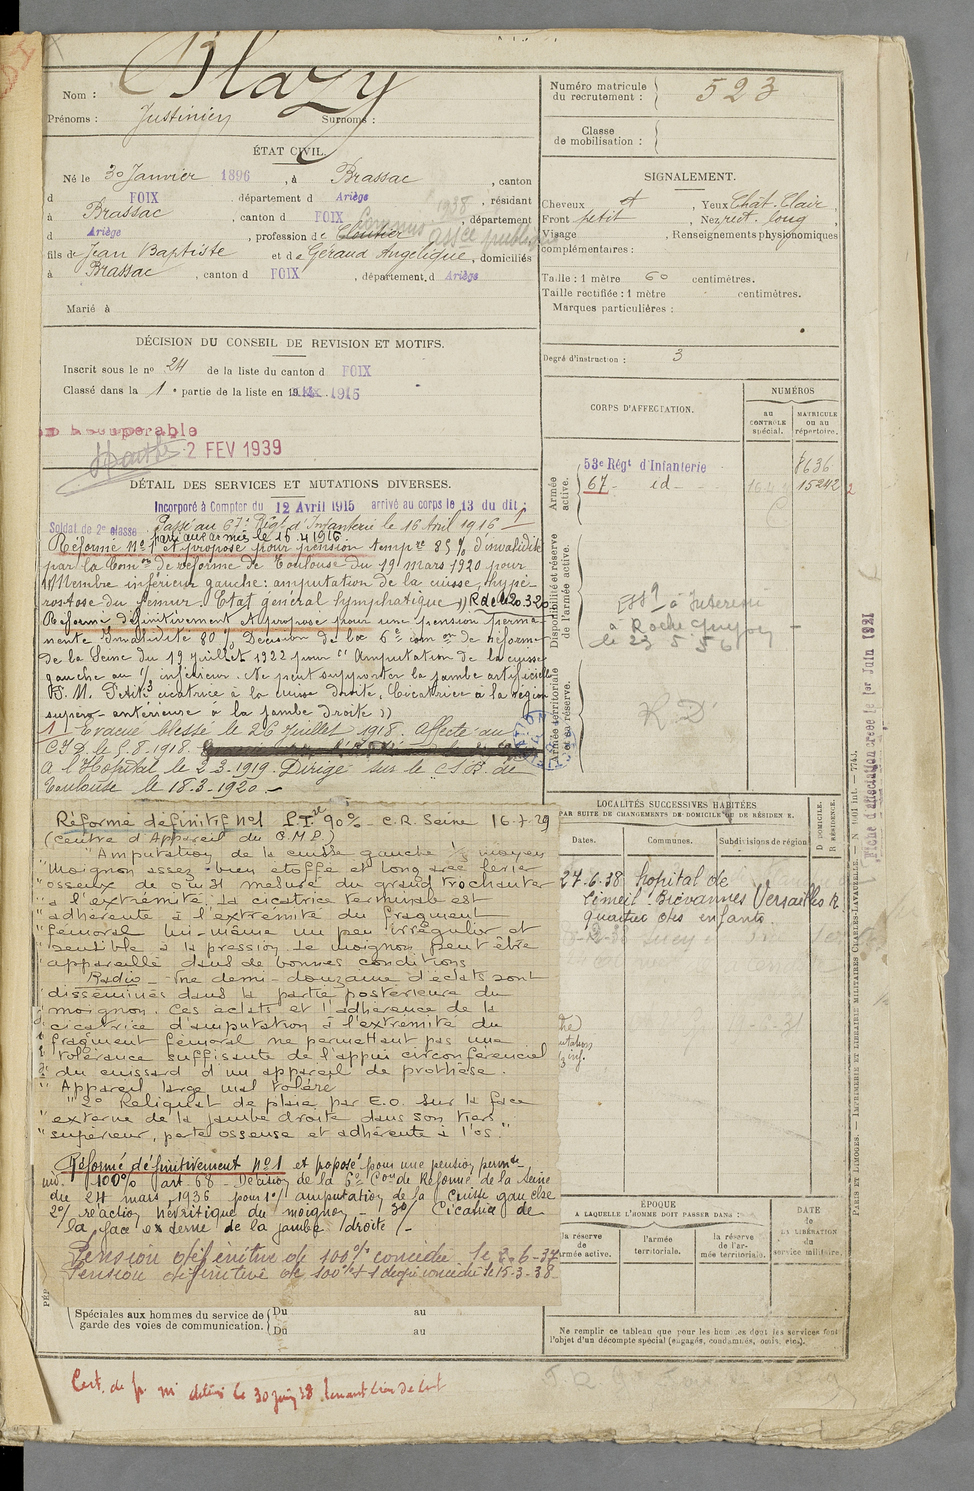 Nom : Blazy
Prénoms : Justinien Surnoms :
ÉTAT CIVIL.
Né le 30 Janvier 1896, à Brassac, canton
d FOIX, département d Ariège, résidant
à Brassac, canton d FOIX, 1938 département
d Ariège, profession de Cloutier Commis assce publique
fils de Jean Baptiste et de Géraud Angélique, domiciliés
à Brassac, canton d FOIX, département d Ariège
Marié à
DÉCISION DU CONSEIL DE REVISION ET MOTIFS.
Inscrit sous le no 24 de la liste du canton d FOIX
Classé dans la 1e partie de la liste en 1916
2 FEV 1939
DÉTAIL DES SERVICES ET MUTATIONS DIVERSES.
Incorporé à Compter du 12 Avril 1915 arrivé au corps le 13 du dit
Soldat de 2e classe Passé au 67e Régt d'Infanterie le 16 Avril 1916
parti aux armées le 16.4.1916
Réformé No 1 et proposé pour pension tempre 85 % d'invalidité
par la Comon de réforme de Toulouse du 19 mars 1920 pour
Membre inférieur gauche : amputation de la cuisse, hypé-
rostose du fémur. Etat général lymphatique )) R de le 20.3.20
Réformé définitivement et proposé pour une pension perma-
nente Invalidité 80 % Décision de la 6e comon de Réforme
de la Seine du 19 juillet 1922 pour " Amputation de la cuisse
gauche au 1/3 inférieur. Ne peut supporter la jambe artificielle
P. M. Petite cicatrice à la cuisse droite. Cicatrice à la région
supéro-antérieure à la jambe droite ))
1) Evacué blessé le 26 Juillet 1918. Affecté au
C I D le 5.8.1918.
A l'Hôpital le 2-3-1919. Dirigé sur le C.S.R. de
Toulouse le 18-3-1920.-
Réformé définitif No1 P.T. 90% - C.R. Seine 16-7-29
(Centre d'Appareil du G.M.P.)
"Amputation de la cuisse gauche 1/3 moyen
"Moignon assez bien étoffé et long avec levier
"osseux de 0m31 mesuré du grand trochanter
"à l'extrémité. La cicatrice terminale est
"adhérente à l'extrémité du fragment
"fémoral lui-même un peu irrégulier et
"sensible à la pression. Le moignon peut être
"appareillé dans de bonnes conditions.
" Radio - Une demi-douzaine d'éclats sont
"disséminés dans la partie postérieure du
"moignon. Ces éclats et l'adhérence de la
"cicatrice d'amputation à l'extrémité du
"fragment fémoral ne permettant pas une
"tolérance suffisante de l'appui circonférenciel
"du cuissard d'un appareil de prothèse.
" Appareil large mal toléré
" 2o Reliquat de plaie par E.O. sur la face
"externe de la jambe droite dans son tiers
"supérieur, perte osseuse et adhérente à l'os."
Réformé définitivement No1 et proposé pour une pension permte
inv. 100% art. 68 - Décision de la 6e Comon de Réforme de la Seine
du 24 mars 1936 pour 1o/ amputation de la cuisse gauche
2o/ réaction névritique du moignon - 3o/ Cicatrice de
la face externe de la jambe droite /-
Pension définitive de 100% concédée le 2-6-37
Pension définitive de 100% + 1 degré concédée le 15-3-38
Spéciales aux hommes du service de garde des voies de communication.
Du au
Du au
Cert. de
Numéro matricule du recrutement : 523
Classe de mobilisation :
SIGNALEMENT.
Cheveux ct, Yeux Chât. Clair,
Front petit, Nez rect. long
Visage, Renseignements physionomiques
complémentaires :
Taille : 1 mètre 60 centimètres.
Taille rectifiée : 1 mètre centimètres.
Marques particulières :
Degré d'instruction : 3
CORPS D'AFFECTATION.
NUMÉROS
AU CONTRÔLE spécial.
MATRICULE ou au répertoire.
Armée active.
53e Régt d'Infanterie 8636
67 - id - 15242
Disponibilité et réserve de l'armée active.
à Roche Guyon
le 23 5 36
Armée territoriale et sa réserve.
R.D.
LOCALITÉS SUCCESSIVES HABITÉES
PAR SUITE DE CHANGEMENTS DE DOMICILE OU DE RÉSIDENCE.
Dates. Communes. Subdivisions de région
D DOMICILE.
R RÉSIDENCE.
27-6-38 hopital de
Limeil-Brévannes Versailles R
quartier des enfants.
ÉPOQUE
A LAQUELLE L'HOMME DOIT PASSER DANS :
la réserve de l'armée active.
l'armée territoriale.
la réserve de l'armée territoriale.
DATE de LA LIBÉRATION du service militaire.
Ne remplir ce tableau que pour les hommes dont les services font
l'objet d'un décompte spécial (engagés, condamnés, omis, etc.).
Fiche d'affectation créée le 1er Juin 1921
PARIS ET LIMOGES. — IMPRIMERIE ET LIBRAIRIE MILITAIRES CHARLES-LAVAUZELLE.